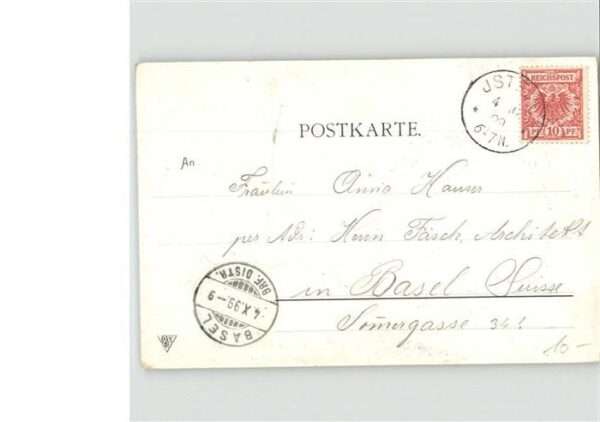 REICHSPOST
10 PF
JST
4
99
6-7N.
POSTKARTE.
An
Fräulein Anna Hauser
per Adr: Herrn Fäsch, Architekt
in Basel Suisse
Sommergasse 34!
BRF. DISTR.
4.X.99.-9
BASEL
10-